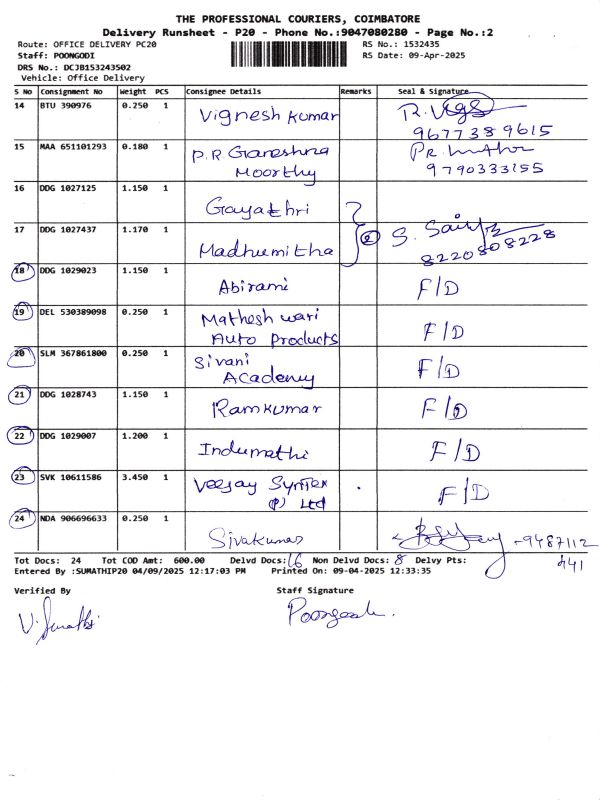 THE PROFESSIONAL COURIERS, COIMBATORE
Delivery Runsheet - P20 - Phone No.:9047080280 - Page No.:2
Route: OFFICE DELIVERY PC20 RS No.: 1532435
Staff: POONGODI RS Date: 09-Apr-2025
DRS No.: DCJB153243502
Vehicle: Office Delivery
S No Consignment No Weight PCS Consignee Details Remarks Seal & Signature
14 BTU 390976 0.250 1 Vignesh Kumar
9677389615
15 MAA 651101293 0.180 1 P.R Ganeshna
Moorthy
9790333155
16 DDG 1027125 1.150 1 Gayathri
17 DDG 1027437 1.170 1 Madhumitha 2
8220808228
18 DDG 1029023 1.150 1 Abirami F/D
19 DEL 530389098 0.250 1 Mathesh wari
Auto Products F/D
20 SLM 367861800 0.250 1 Sivani
Academy F/D
21 DDG 1028743 1.150 1 Ramkumar F/D
22 DDG 1029007 1.200 1 Indumathi F/D
23 SVK 10611586 3.450 1 Veejay Syntex
(P) Ltd F/D
24 NDA 906696633 0.250 1 Sivakumar -9487112
441
Tot Docs: 24 Tot COD Amt: 600.00 Delvd Docs: 16 Non Delvd Docs: 8 Delvy Pts:
Entered By :SUMATHIP20 04/09/2025 12:17:03 PM Printed On: 09-04-2025 12:33:35
Verified By Staff Signature
V. Sumathi